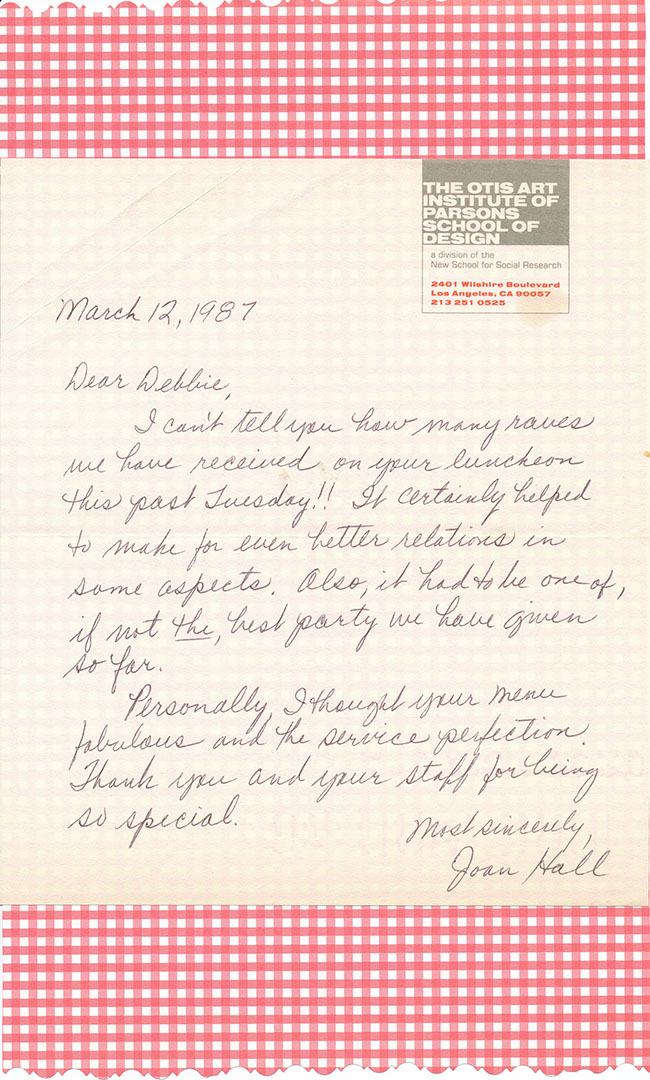 THE OTIS ART
INSTITUTE OF
PARSONS
SCHOOL OF
DESIGN
a division of the
New School for Social Research
2401 Wilshire Boulevard
Los Angeles, CA 90057
213 251 0525
March 12, 1987
Dear Debbie,
I can't tell you how many raves
we have received on your luncheon
this past Tuesday!! It certainly helped
to make for even better relations in
some aspects. Also, it had to be one of,
if not the, best party we have given
so far.
Personally, I thought your menu
fabulous and the service perfection.
Thank you and your staff for being
so special.
Most sincerely,
Joan Hall